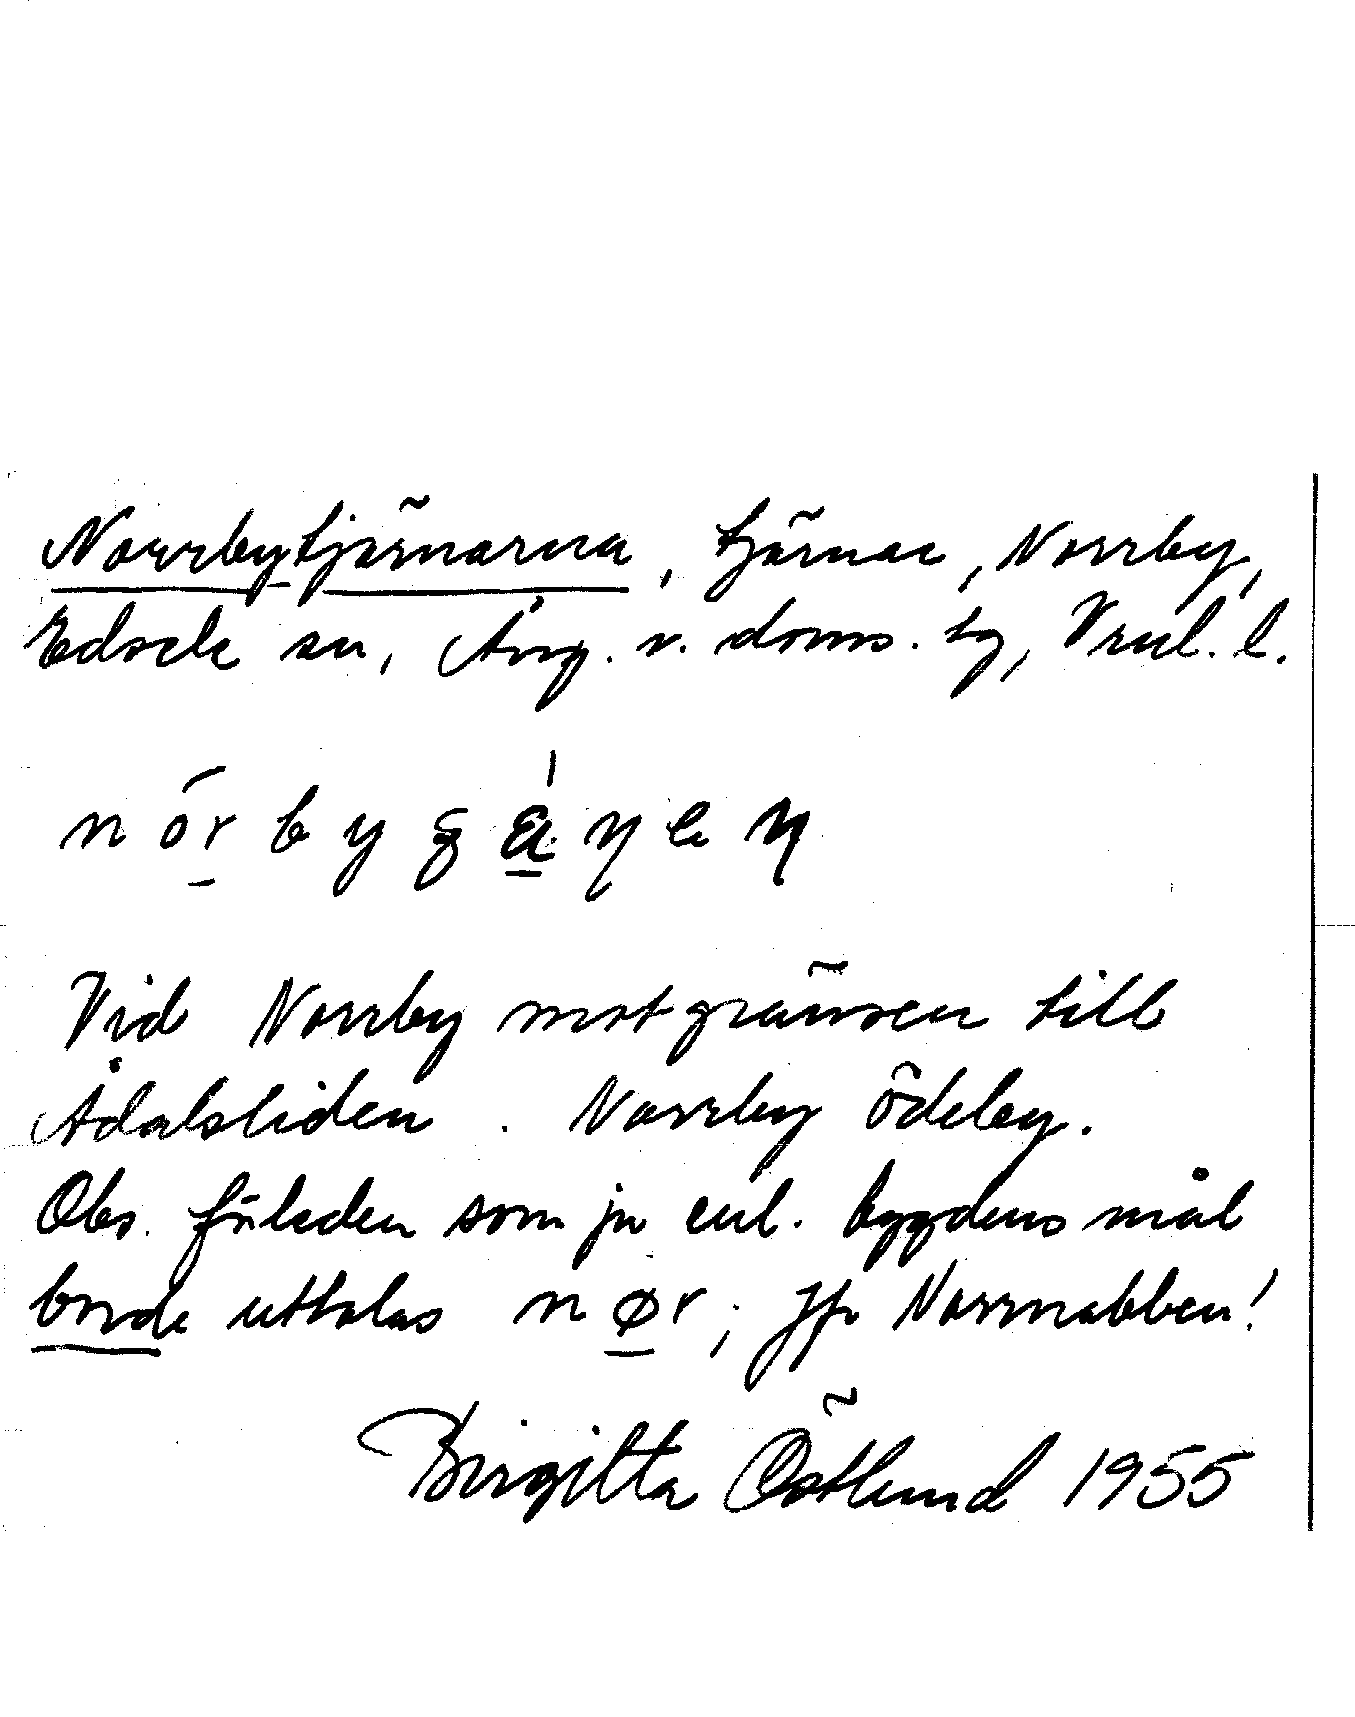 Norrbytjärnarna, tjärnar, Norrby,
Edsele sn, Ång. v. doms. tg, Vnl. l.
Vid Norrby mot gränsen till
Ådalsliden. Norrby ödeby.
Obs. förleden som ju enl. bygdens mål
borde uttalas nør; jfr Norrnabben!
Birgitta Östlund 1955